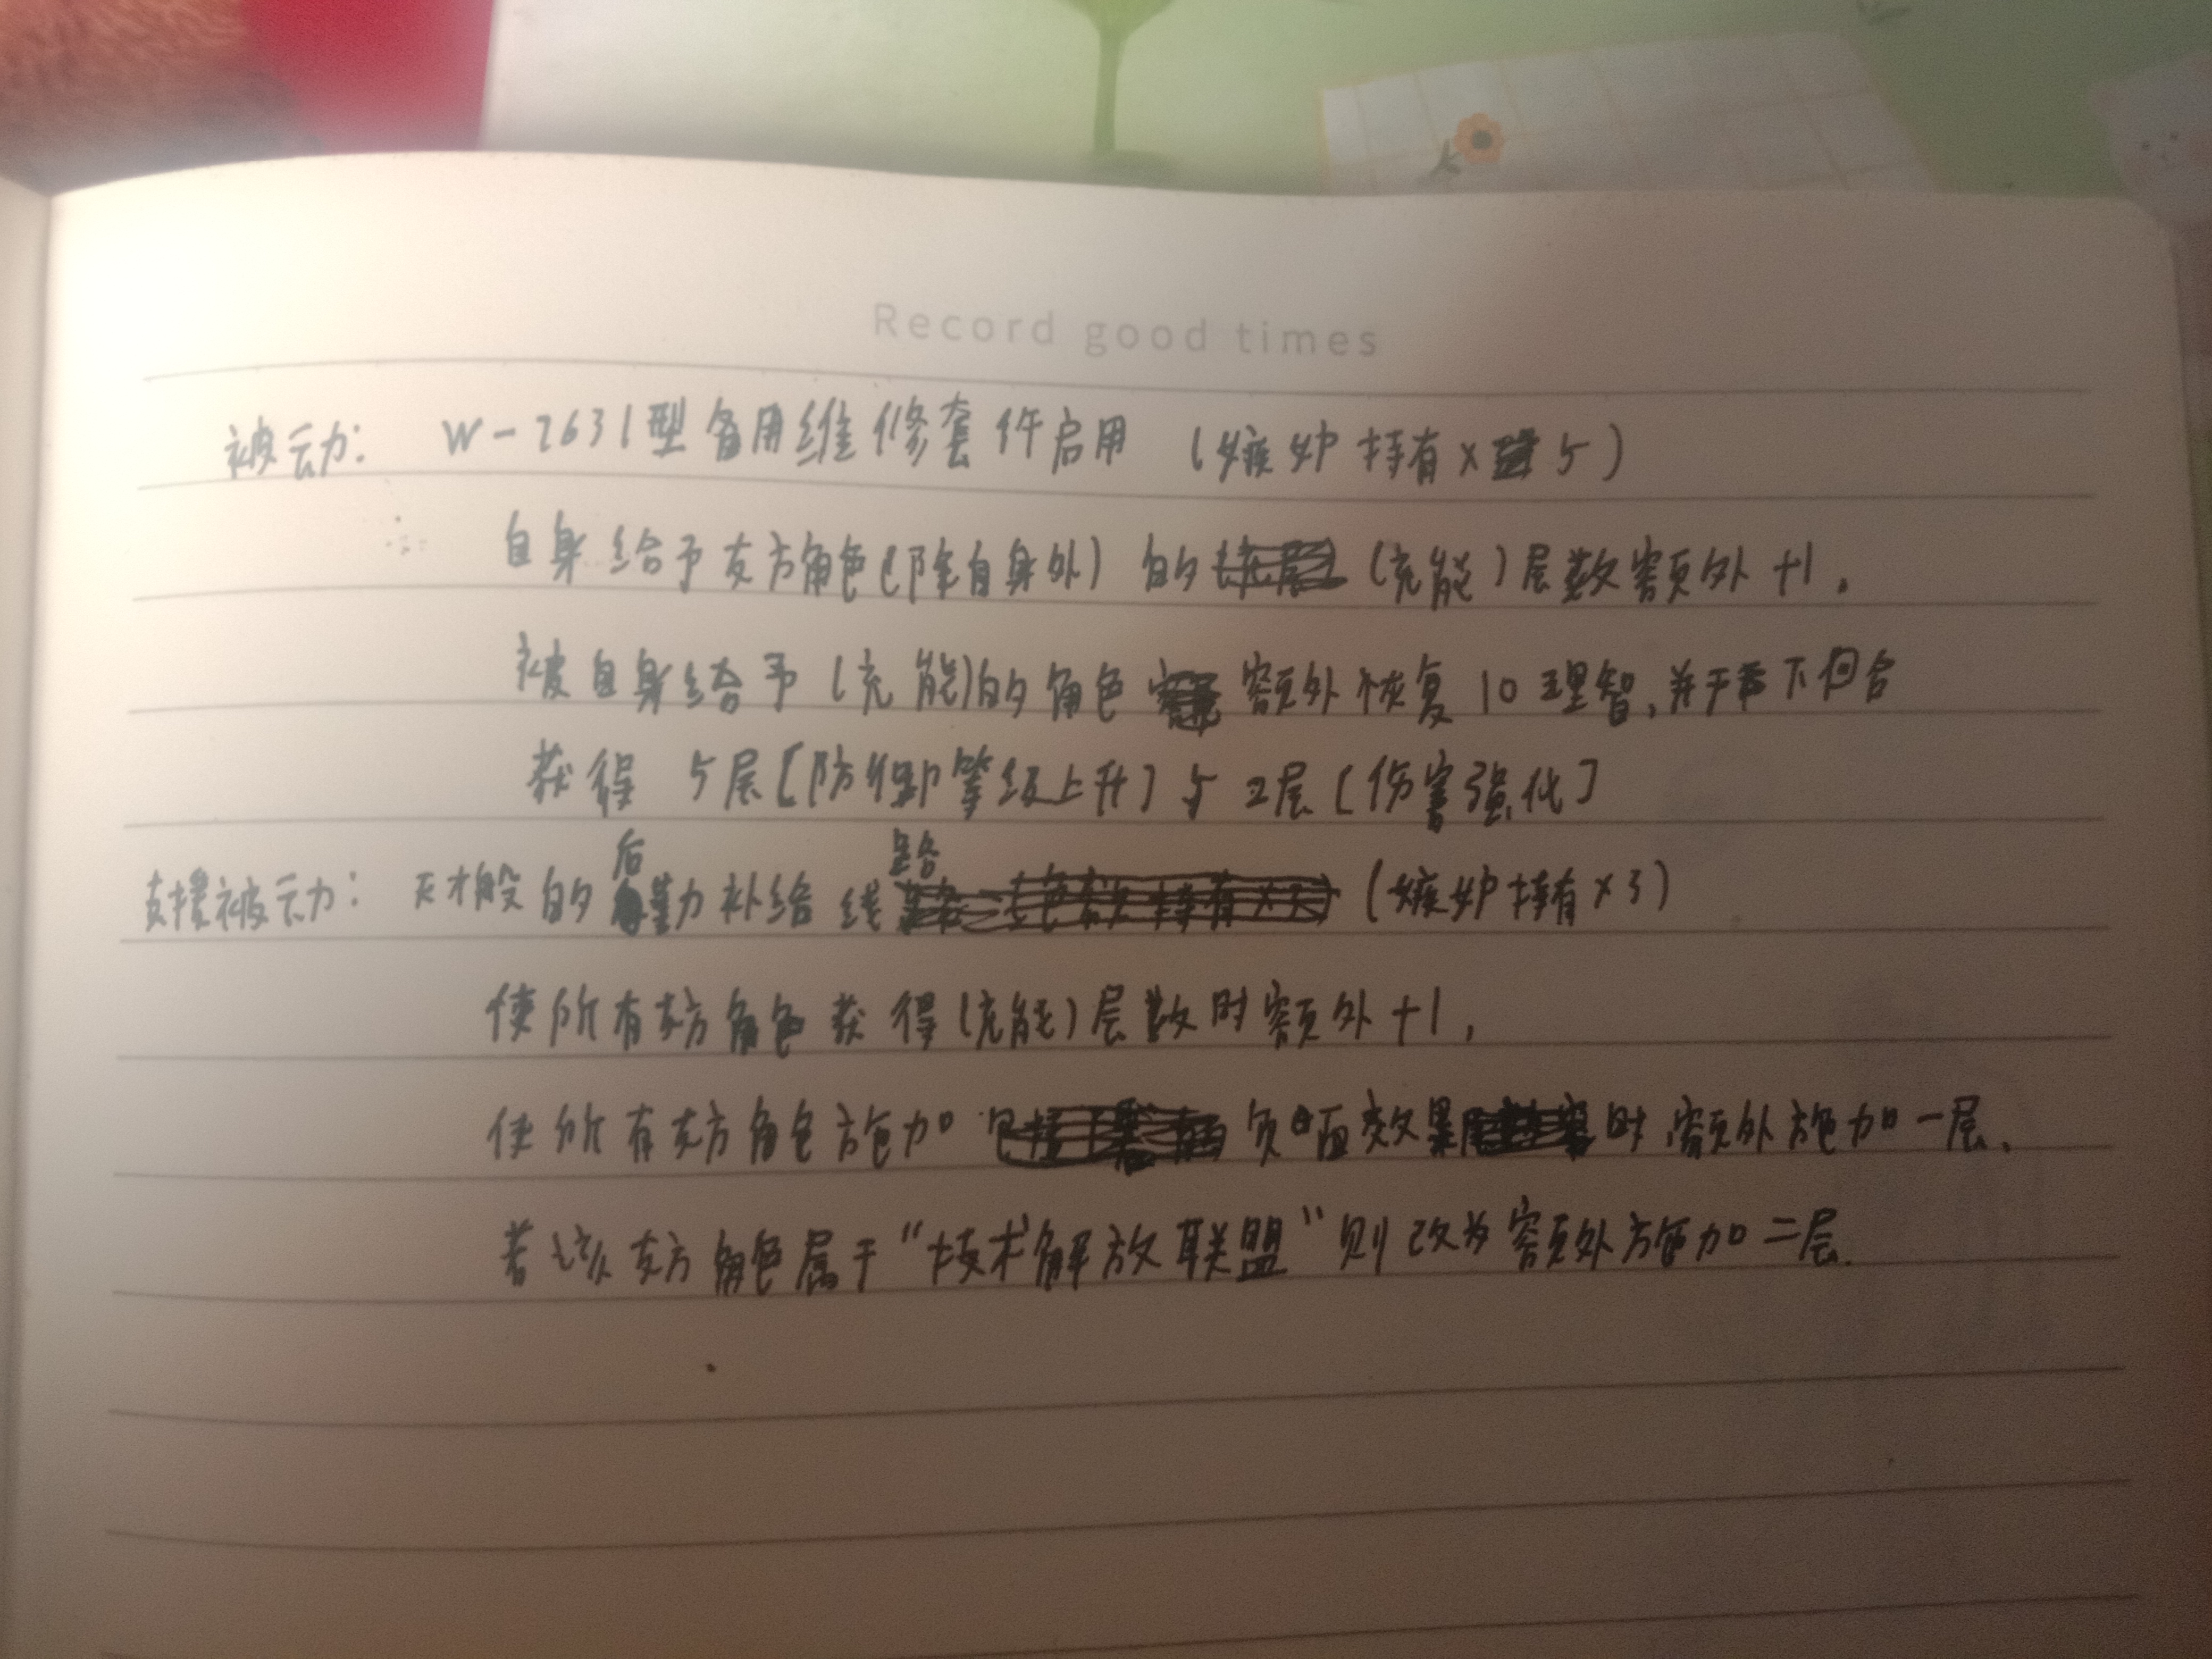 Record good times
被动: W-2631型备用维修套件启用 (嫉妒持有×5)
自身给予友方角色(除自身外)的(充能)层数额外+1。
被自身给予(充能)的角色额外恢复10理智,并于下回合
获得 5层[防御等级上升]与2层[伤害强化]
支援被动: 天才般的后勤补给线路 (嫉妒持有×3)
使所有友方角色获得(充能)层数时额外+1,
使所有友方角色施加负面效果时,额外施加一层、
若该友方角色属于“技术解放联盟”则改为额外施加二层.